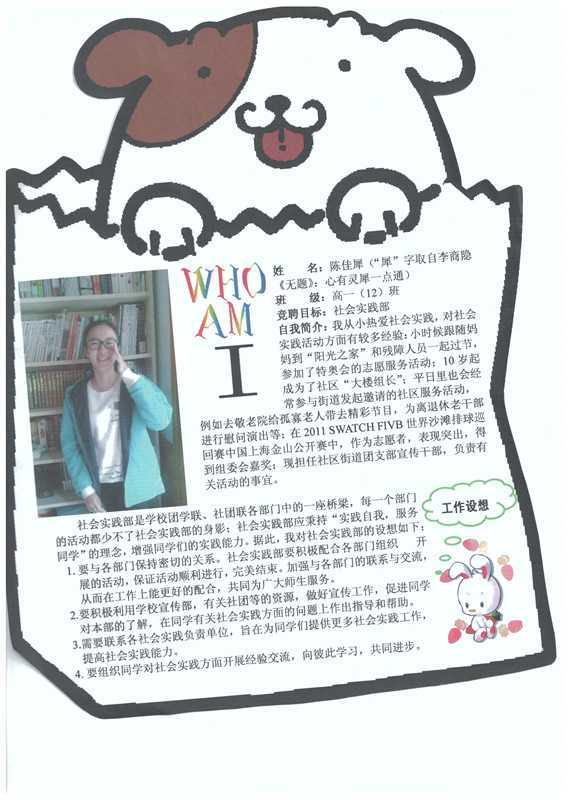 WHO
AM
I
姓　　名：陈佳犀（“犀”字取自李商隐
《无题》：心有灵犀一点通）
班　　级：高一（12）班
竞聘目标：社会实践部
自我简介：我从小热爱社会实践，对社会
实践活动方面有较多经验：小时候跟随妈
妈到“阳光之家”和残障人员一起过节，
参加了特奥会的志愿服务活动；10 岁起
成为了社区“大楼组长”；平日里也会经
常参与街道发起邀请的社区服务活动，
例如去敬老院给孤寡老人带去精彩节目，为离退休老干部
进行慰问演出等；在 2011 SWATCH FIVB 世界沙滩排球巡
回赛中国上海金山公开赛中，作为志愿者，表现突出，得
到组委会嘉奖；现担任社区街道团支部宣传干部，负责有
关活动的事宜。
工作设想
社会实践部是学校团学联、社团联各部门中的一座桥梁，每一个部门
的活动都少不了社会实践部的身影；社会实践部应秉持“实践自我，服务
同学”的理念，增强同学们的实践能力。据此，我对社会实践部的设想如下：
1. 要与各部门保持密切的关系。社会实践部要积极配合各部门组织　开
展的活动，保证活动顺利进行，完美结束。加强与各部门的联系与交流，
从而在工作上能更好的配合，共同为广大师生服务。
2.要积极利用学校宣传部，有关社团等的资源，做好宣传工作，促进同学
对本部的了解，在同学有关社会实践方面的问题上作出指导和帮助。
3.需要联系各社会实践负责单位，旨在为同学们提供更多社会实践工作，
提高社会实践能力。
4. 要组织同学对社会实践方面开展经验交流，向彼此学习，共同进步。